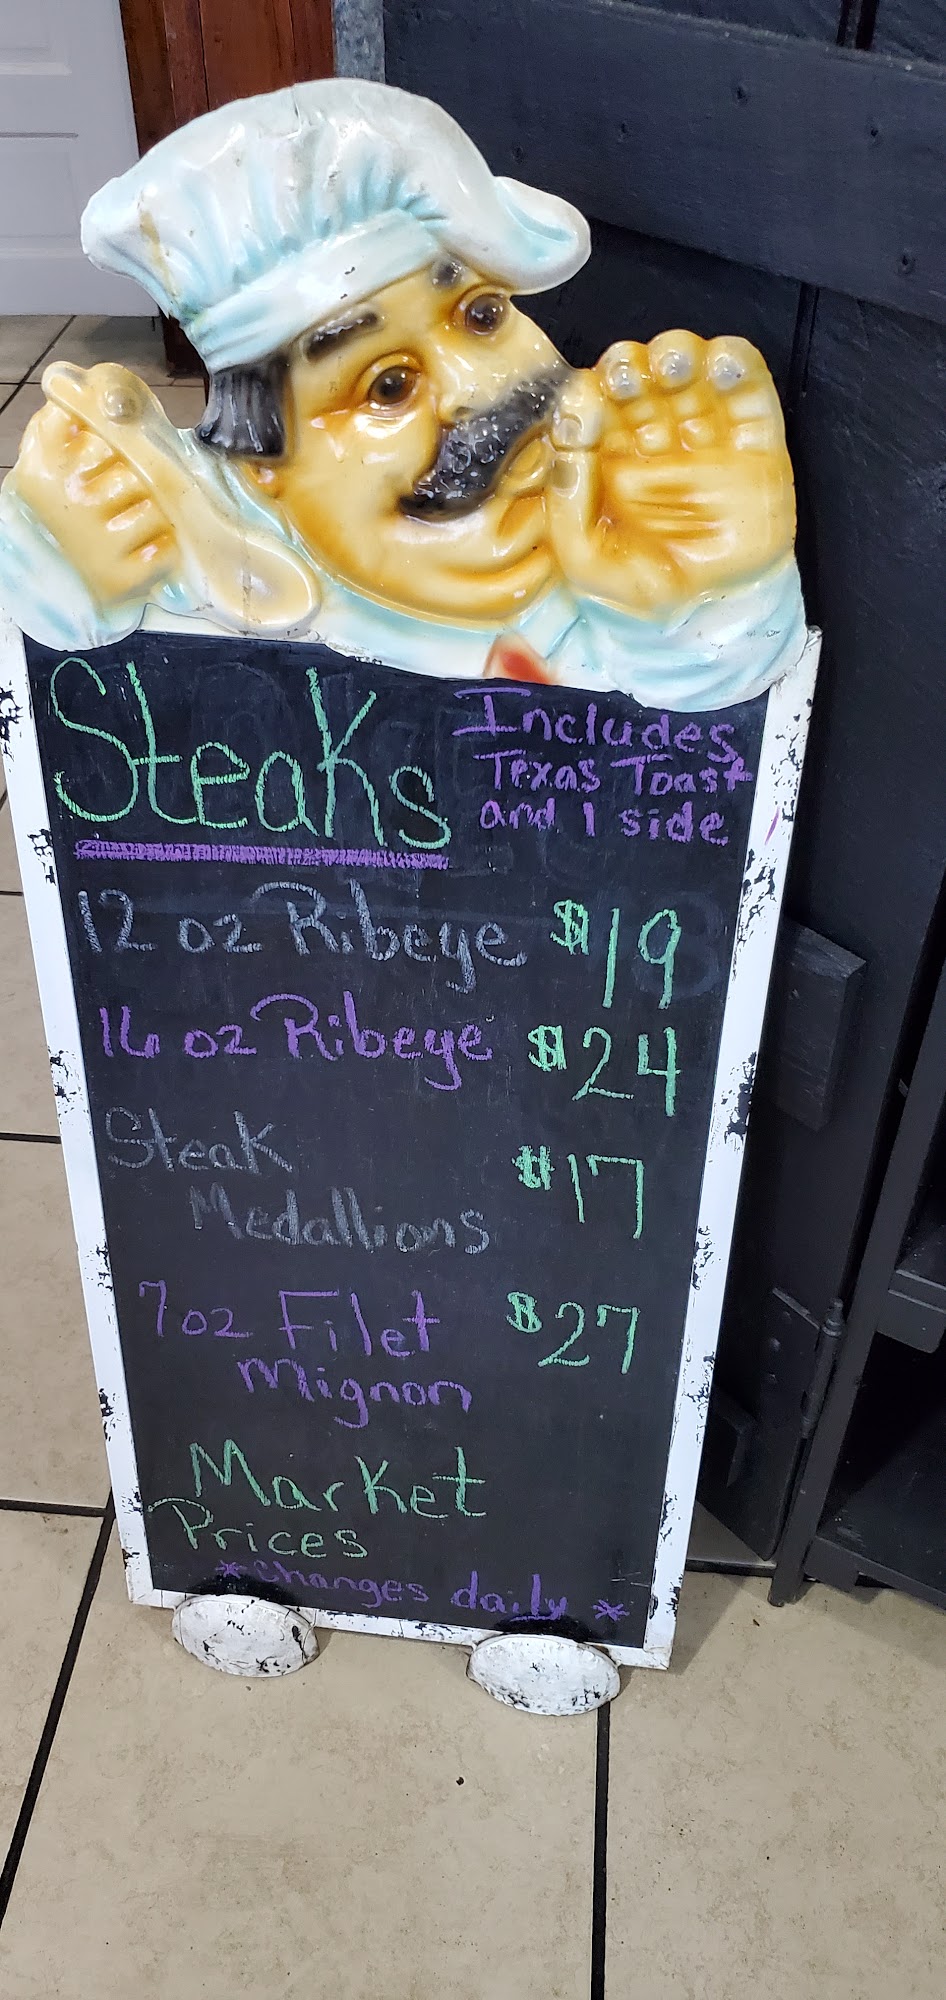 Steaks
Includes
Texas Toast
and 1 side
12 oz Ribeye $19
16 oz Ribeye $24
Steak $17
Medallions
7 oz Filet $27
Mignon
Market
Prices
*Changes daily*